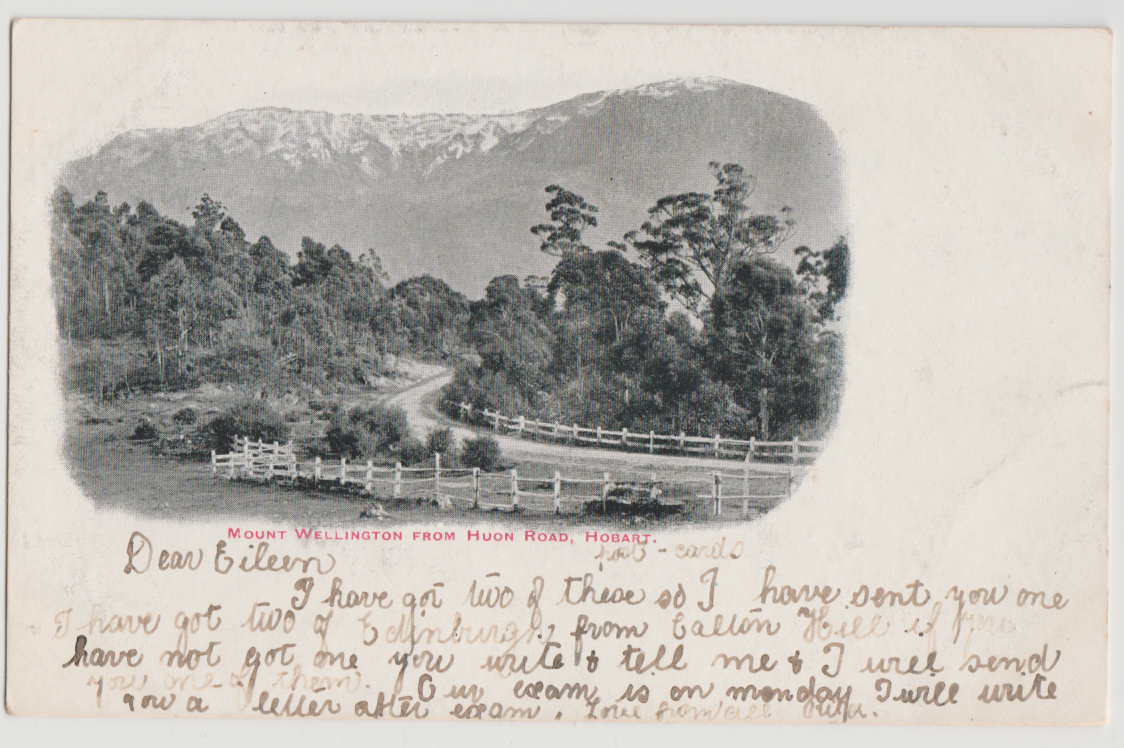 MOUNT WELLINGTON FROM HUON ROAD, HOBART.
Dear Eileen
post - cards
I have got two of these so I have sent you one
I have got two of Edinburgh, from Calton Hill if you
have not got one you write & tell me & I will send
you one of them. Our exam is on monday I will write
you a letter after exam. Love from all